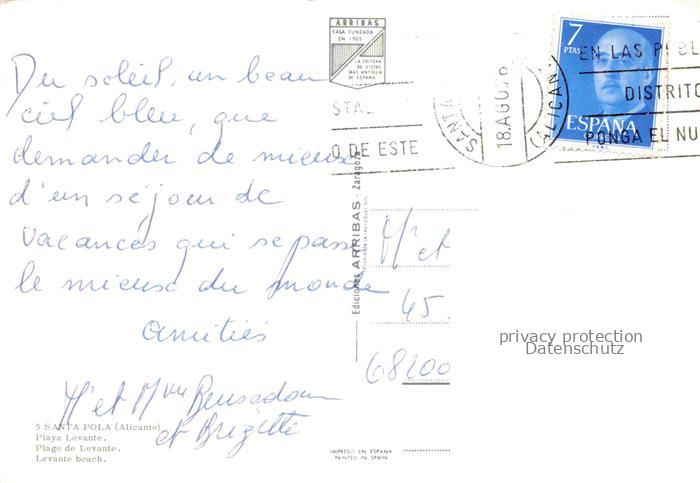 Du soleil, un beau
ciel bleu, que
demander de mieux
d'un séjour de
vacances qui se passe
le mieux du monde
amitiés
Mr et Mme
et Brigitte
5 SANTA POLA (Alicante)
Playa Levante.
Plage de Levante.
Levante beach.
ARRIBAS
CASA FUNDADA
EN 1905
LA EDITORA
DE VISTAS
MAS ANTIGUA
DE ESPAÑA
Ediciones ARRIBAS - Zaragoza
STAL
O DE ESTE
SANTA
18.AGO
(ALICAN
7
PTAS
ESPAÑA
EN LAS P BL
DISTRITO
PONGA EL NU
Mr et
45.
68200
privacy protection
Datenschutz
IMPRESO EN ESPAÑA
PRINTED IN SPAIN